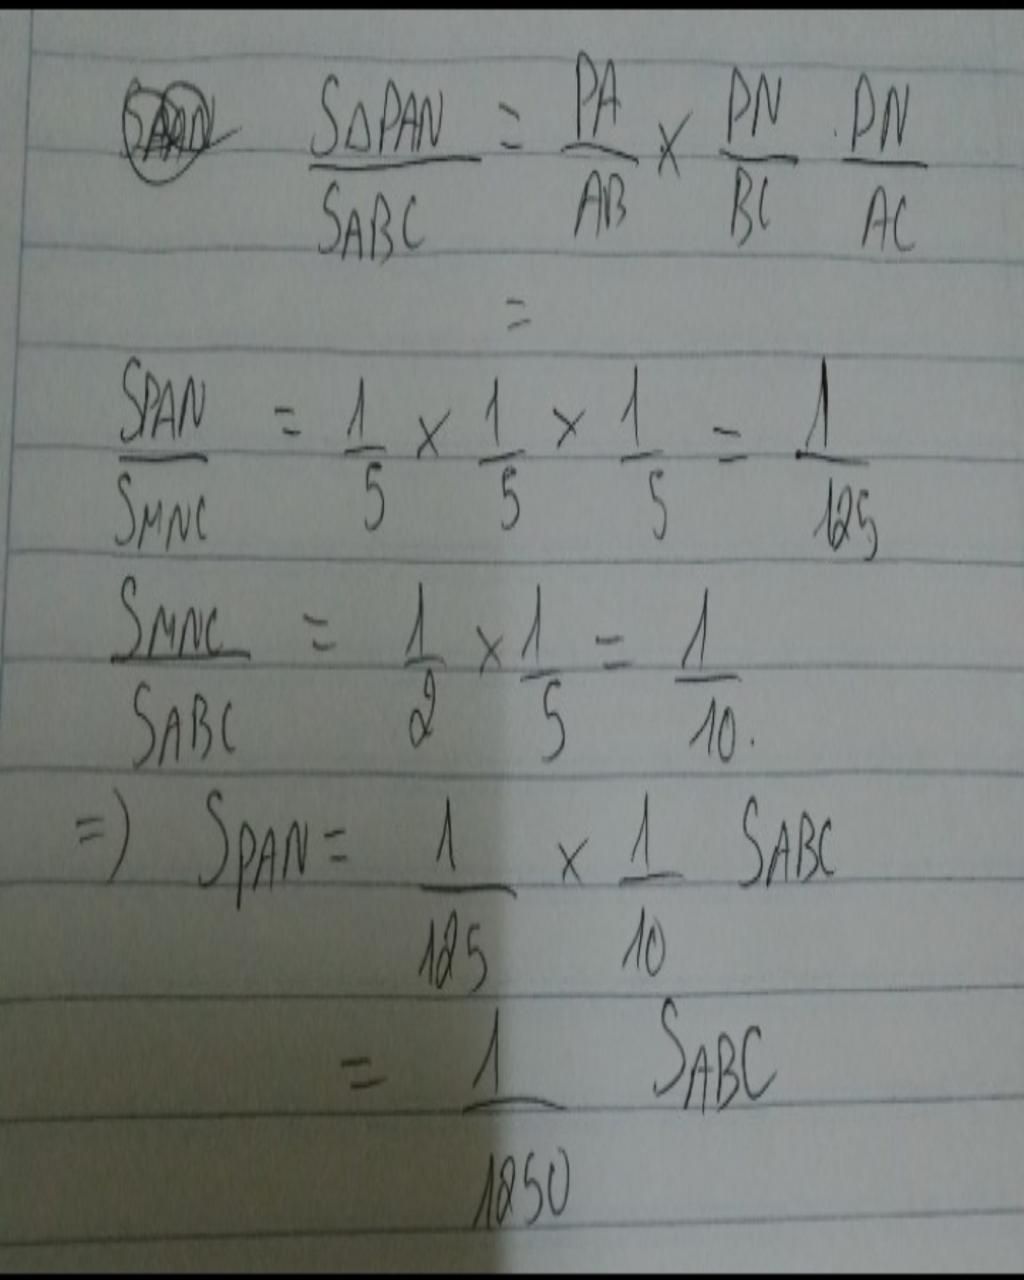 S△PAN / SABC = PA / AB × PN / BC . PN / AC
=
SPAN / SMNC = 1/5 × 1/5 × 1/5 = 1/125
SMNC / SABC = 1/2 × 1/5 = 1/10.
=) SPAN = 1/125 × 1/10 SABC
= 1/1250 SABC